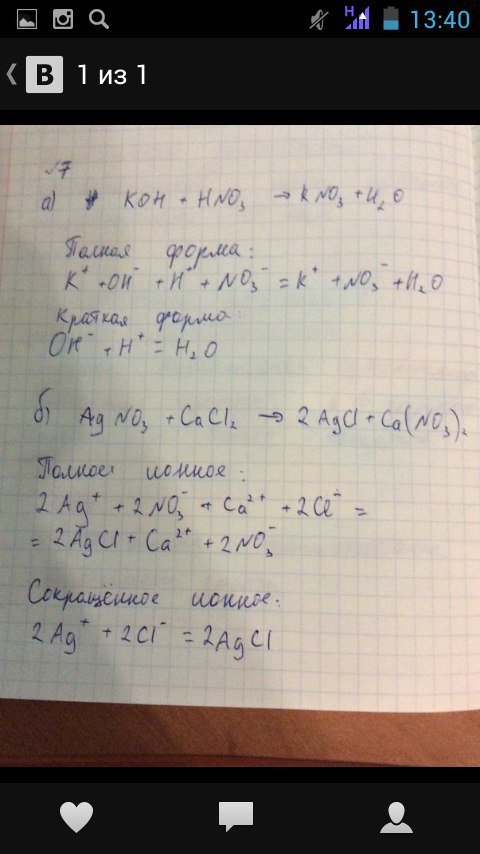 H
13:40
B 1 из 1
№7
а) KOH + HNO₃ → KNO₃ + H₂O
Полная форма:
K⁺ + OH⁻ + H⁺ + NO₃⁻ = K⁺ + NO₃⁻ + H₂O
Краткая форма:
OH⁻ + H⁺ = H₂O
б) AgNO₃ + CaCl₂ → 2AgCl + Ca(NO₃)₂
Полное ионное:
2Ag⁺ + 2NO₃⁻ + Ca²⁺ + 2Cl⁻ =
= 2AgCl + Ca²⁺ + 2NO₃⁻
Сокращённое ионное:
2Ag⁺ + 2Cl⁻ = 2AgCl